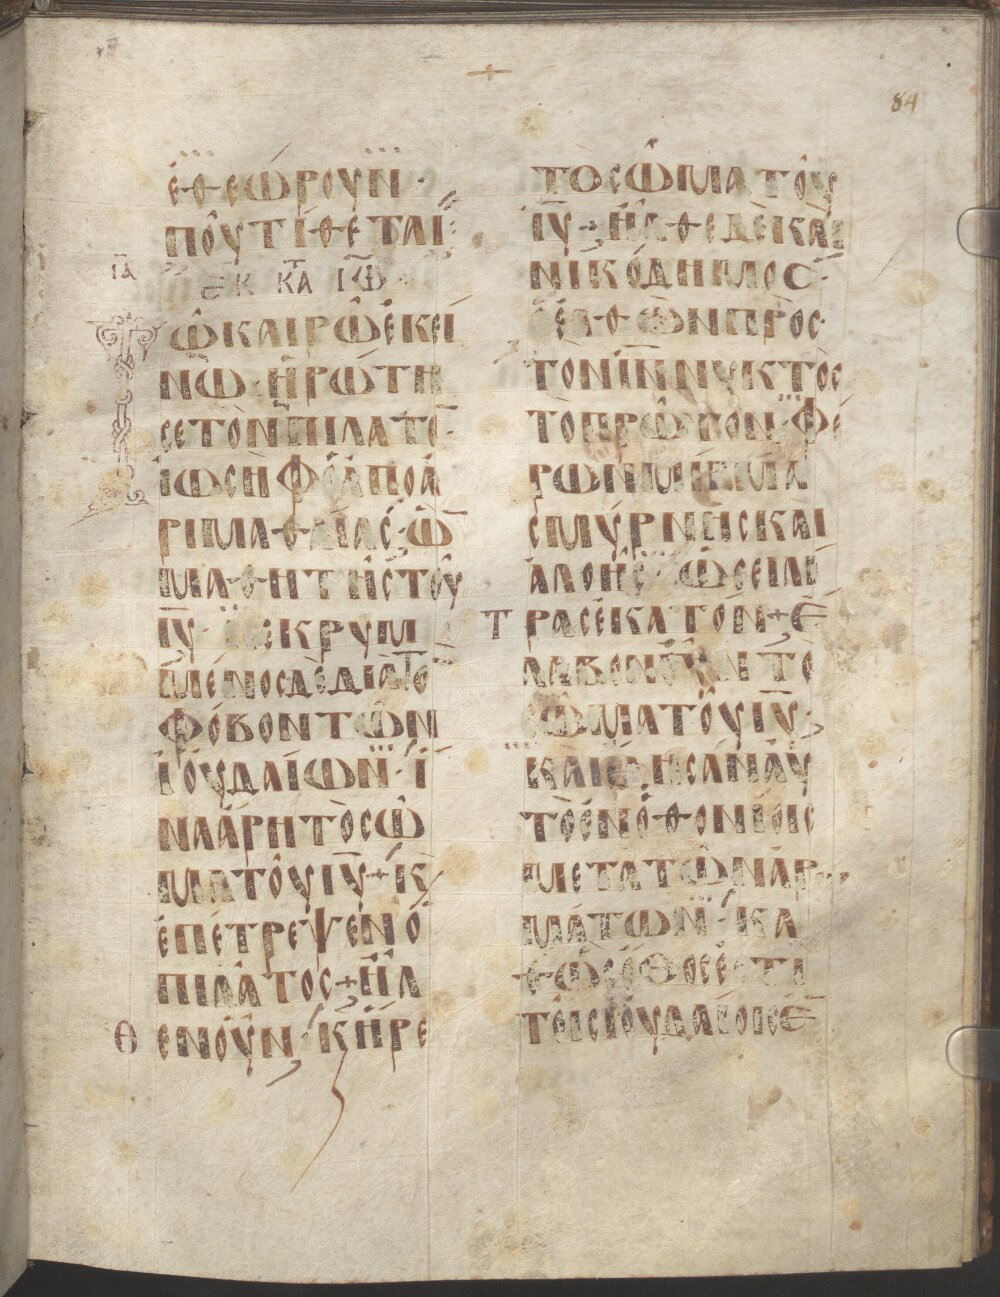 84
ἐθεώρουν·
ποῦ τίθεται
ΙΑ ΕΚ Κ̅ΤΑ ΙΩ̅
Τῶ καιρῶ ἐκεί
νω· ἠρώτη
σε τὸν πιλάτο̅
ἰωσὴφ ὁ ἀπο ἀ
ριμαθαίας· ὢ̅
μαθητὴς τοῦ
ι̅υ̅· κεκρυμ
μένος δὲ διὰ το̅
φόβον τῶν
ἰουδαίων· ἵ
να ἄρη τὸ σῶ
μα τοῦ ι̅υ̅ + κ
ἐπέτρεψεν ὁ
πιλάτος + ἦλ
θεν οὖν· κ ἦρε
τὸ σῶμα τοῦ
ι̅υ̅ + ἦλθε δὲ καὶ
νικόδημος·
ὁ ἐλθὼν προς
τὸν ι̅ν̅ νυκτὸς
τὸ πρῶτον· φέ
ρων μίγμα
σμύρνης καὶ
ἀλόης· ὡσεὶ λί
τρας ἑκατόν + ἔ
λαβον οὖν τὸ
σῶμα τοῦ ι̅υ̅·
καὶ ἔδησαν αυ
τὸ ἐν ὀθονίοις
μετὰ τῶν ἀρω
μάτων· κα
θὼς ἔθος ἐστὶ
τοῖς ἰουδαίοις ἐ̅